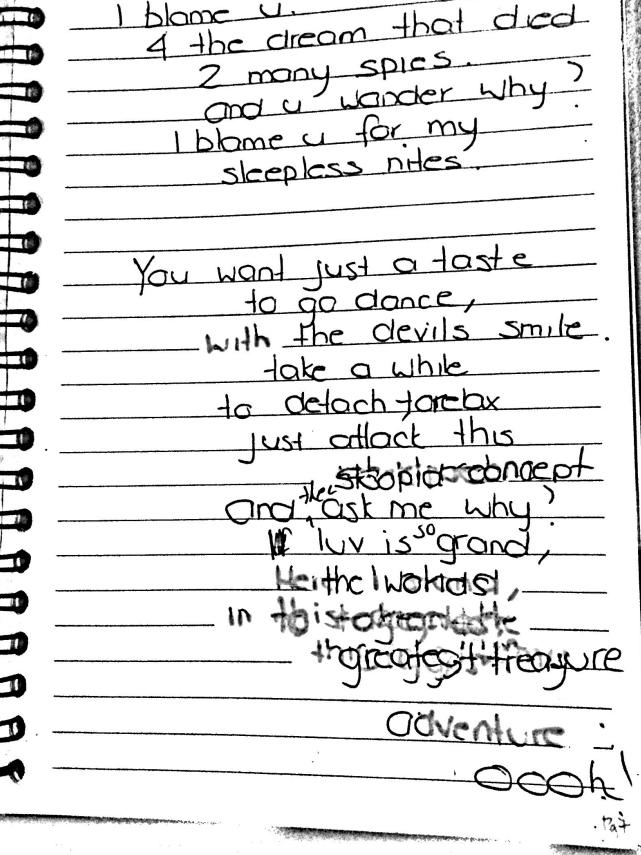 I blame u.
4 the dream that died
2 many spies.
and u wander why?
I blame u for my
sleepless nites.
You want just a taste
to go dance,
with the devils smile.
take a while
to detach relax
just attack this
concept
and then ask me why?
If luv is so grand,
in
greatest treasure
adventure :
oooh!